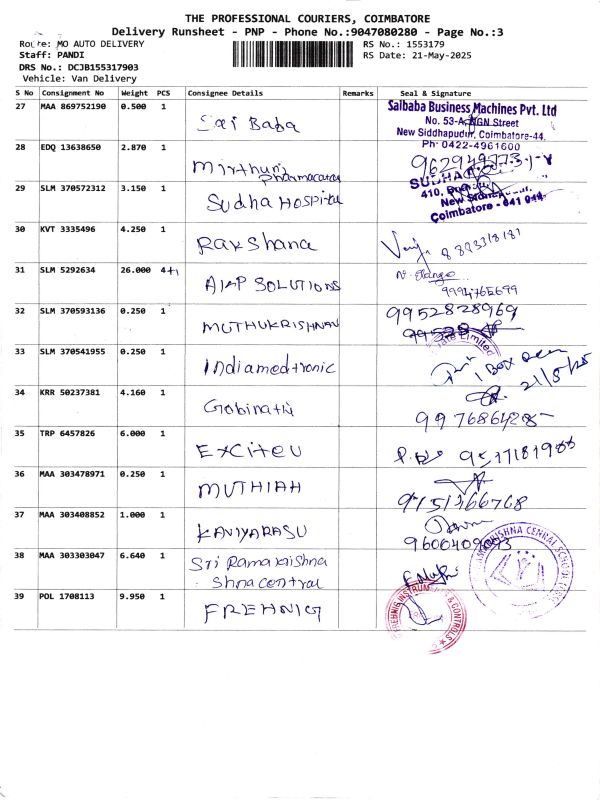 THE PROFESSIONAL COURIERS, COIMBATORE
Delivery Runsheet - PNP - Phone No.:9047080280 - Page No.:3
Route: MO AUTO DELIVERY RS No.: 1553179
Staff: PANDI RS Date: 21-May-2025
DRS No.: DCJB155317903
Vehicle: Van Delivery
S No Consignment No Weight PCS Consignee Details Remarks Seal & Signature
27 MAA 869752190 0.500 1 Sai Baba
Saibaba Business Machines Pvt. Ltd
No. 53-A, NGN Street
New Siddhapudur, Coimbatore-44.
Ph: 0422-4961600
28 EDQ 13638650 2.870 1
29 SLM 370572312 3.150 1 Sudha HOSPital
SUDHA
410,
New
Coimbatore - 641 044.
30 KVT 3335496 4.250 1 Rakshana
31 SLM 5292634 26.000 4+1 SOLUTIONS
9994765699
32 SLM 370593136 0.250 1 MUTHUKRISHNAN 9952828969
33 SLM 370541955 0.250 1 Indiamedtronic
Limited
1 Box
21/5/25
34 KRR 50237381 4.160 1 Gobinath
35 TRP 6457826 6.000 1 Exciteu
36 MAA 303478971 0.250 1 MUTHIAH 9751366768
37 MAA 303408852 1.000 1 KAVIYARASU
38 MAA 303303047 6.640 1 Sri Ramakrishna
39 POL 1708113 9.950 1 FREHNIG